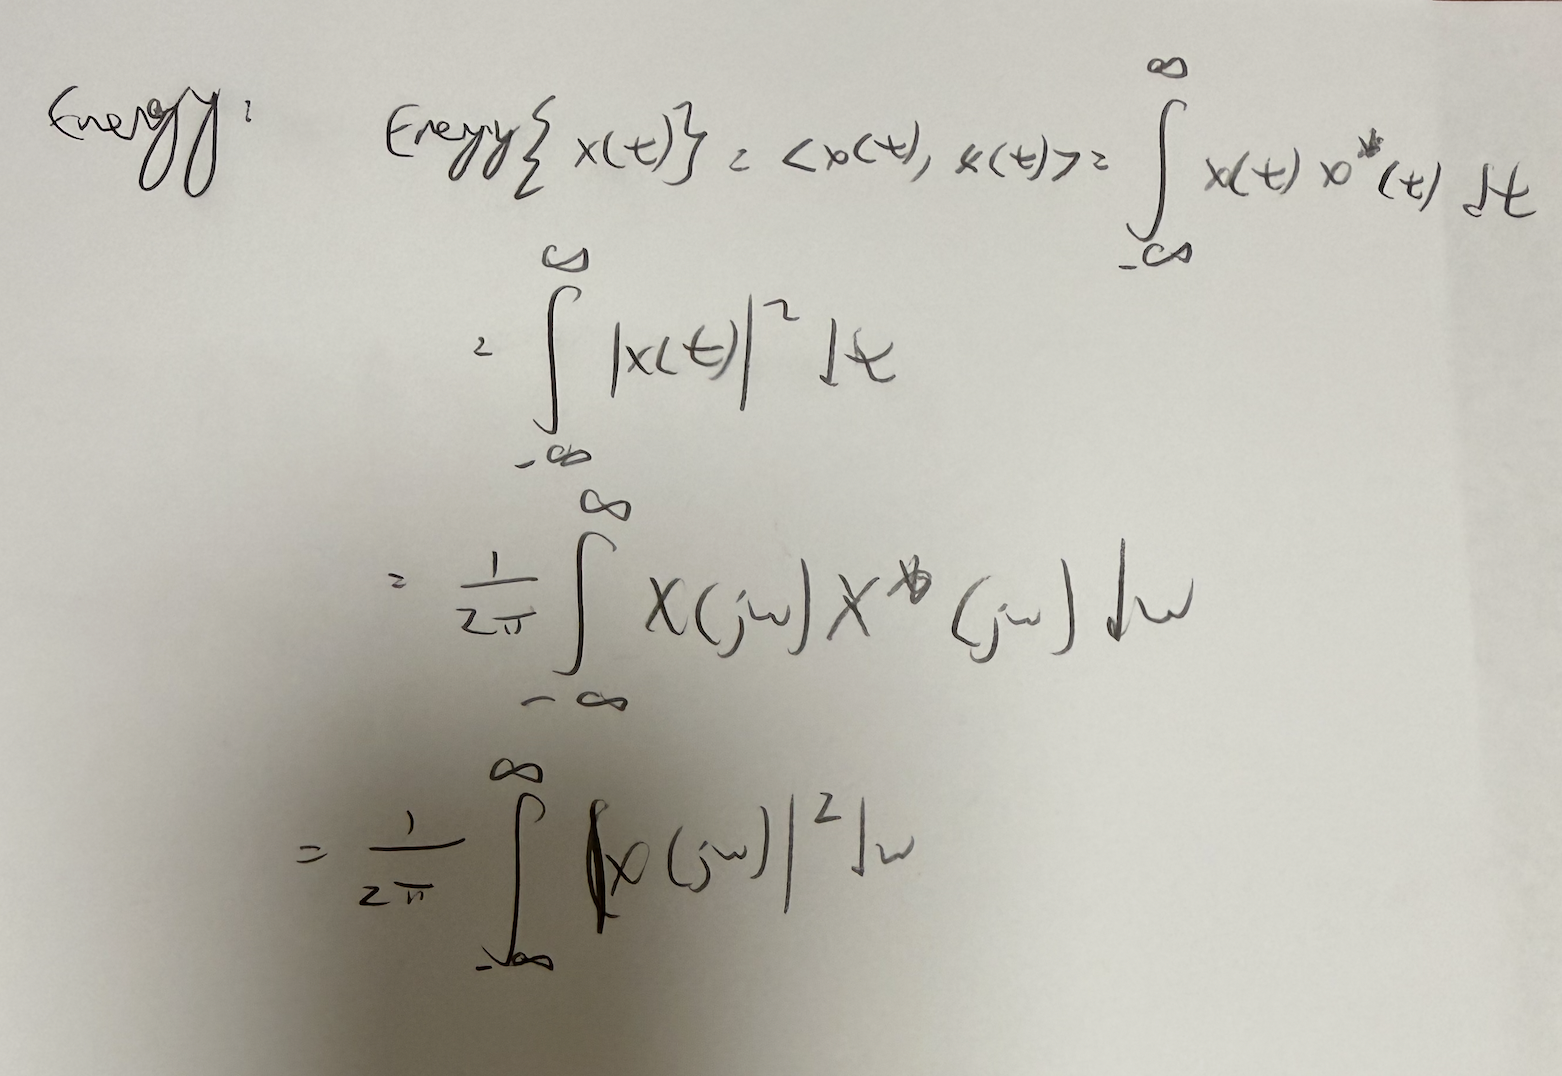 Energy: Energy{x(t)} = <x(t), x(t)> = ∫_{-∞}^{∞} x(t) x*(t) dt
= ∫_{-∞}^{∞} |x(t)|² dt
= 1/2π ∫_{-∞}^{∞} X(jω) X*(jω) dω
= 1/2π ∫_{-∞}^{∞} |X(jω)|² dω